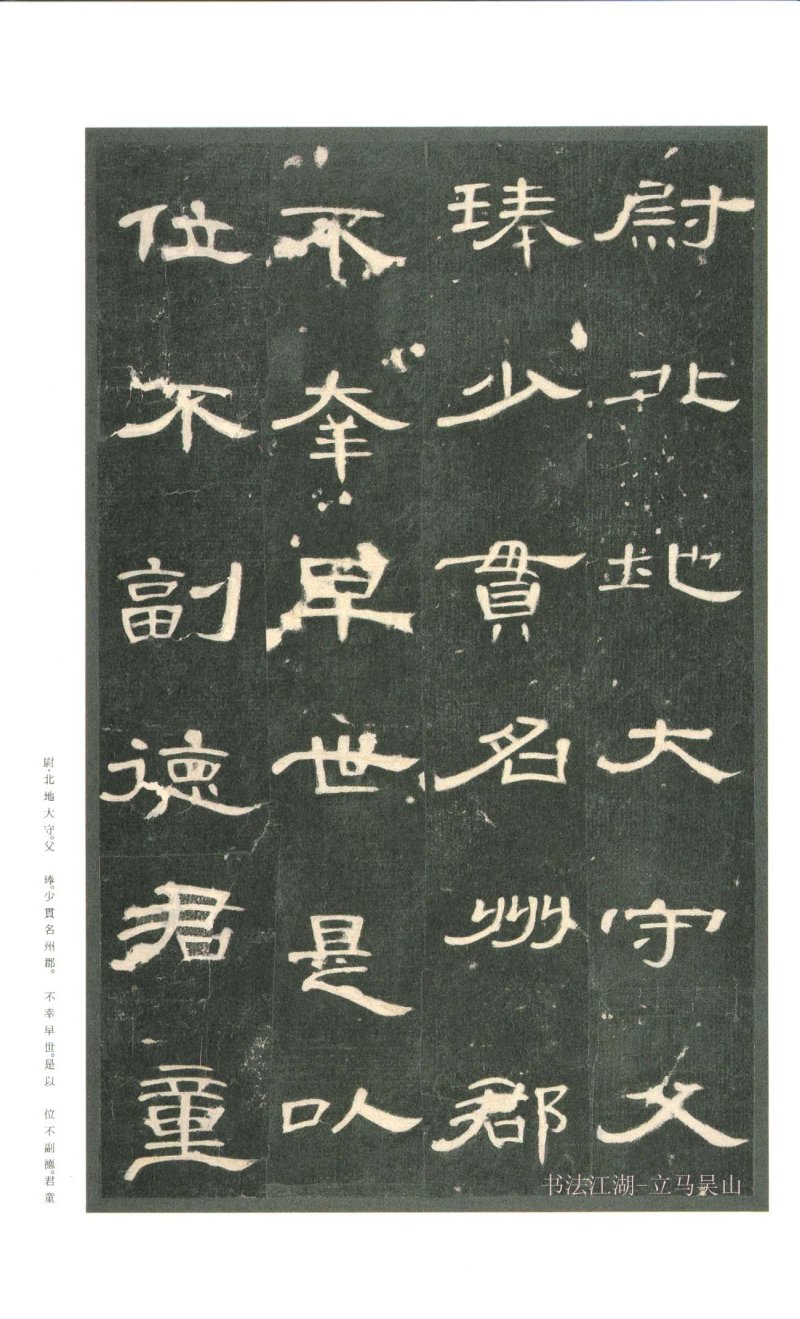 尉北地大守父
琫少貫名州郡
不幸早世是以
位不副德君童
尉·北地大守。父 琫。少貫名州郡。 不幸早世。是以 位不副德。君童
书法江湖-立马吴山